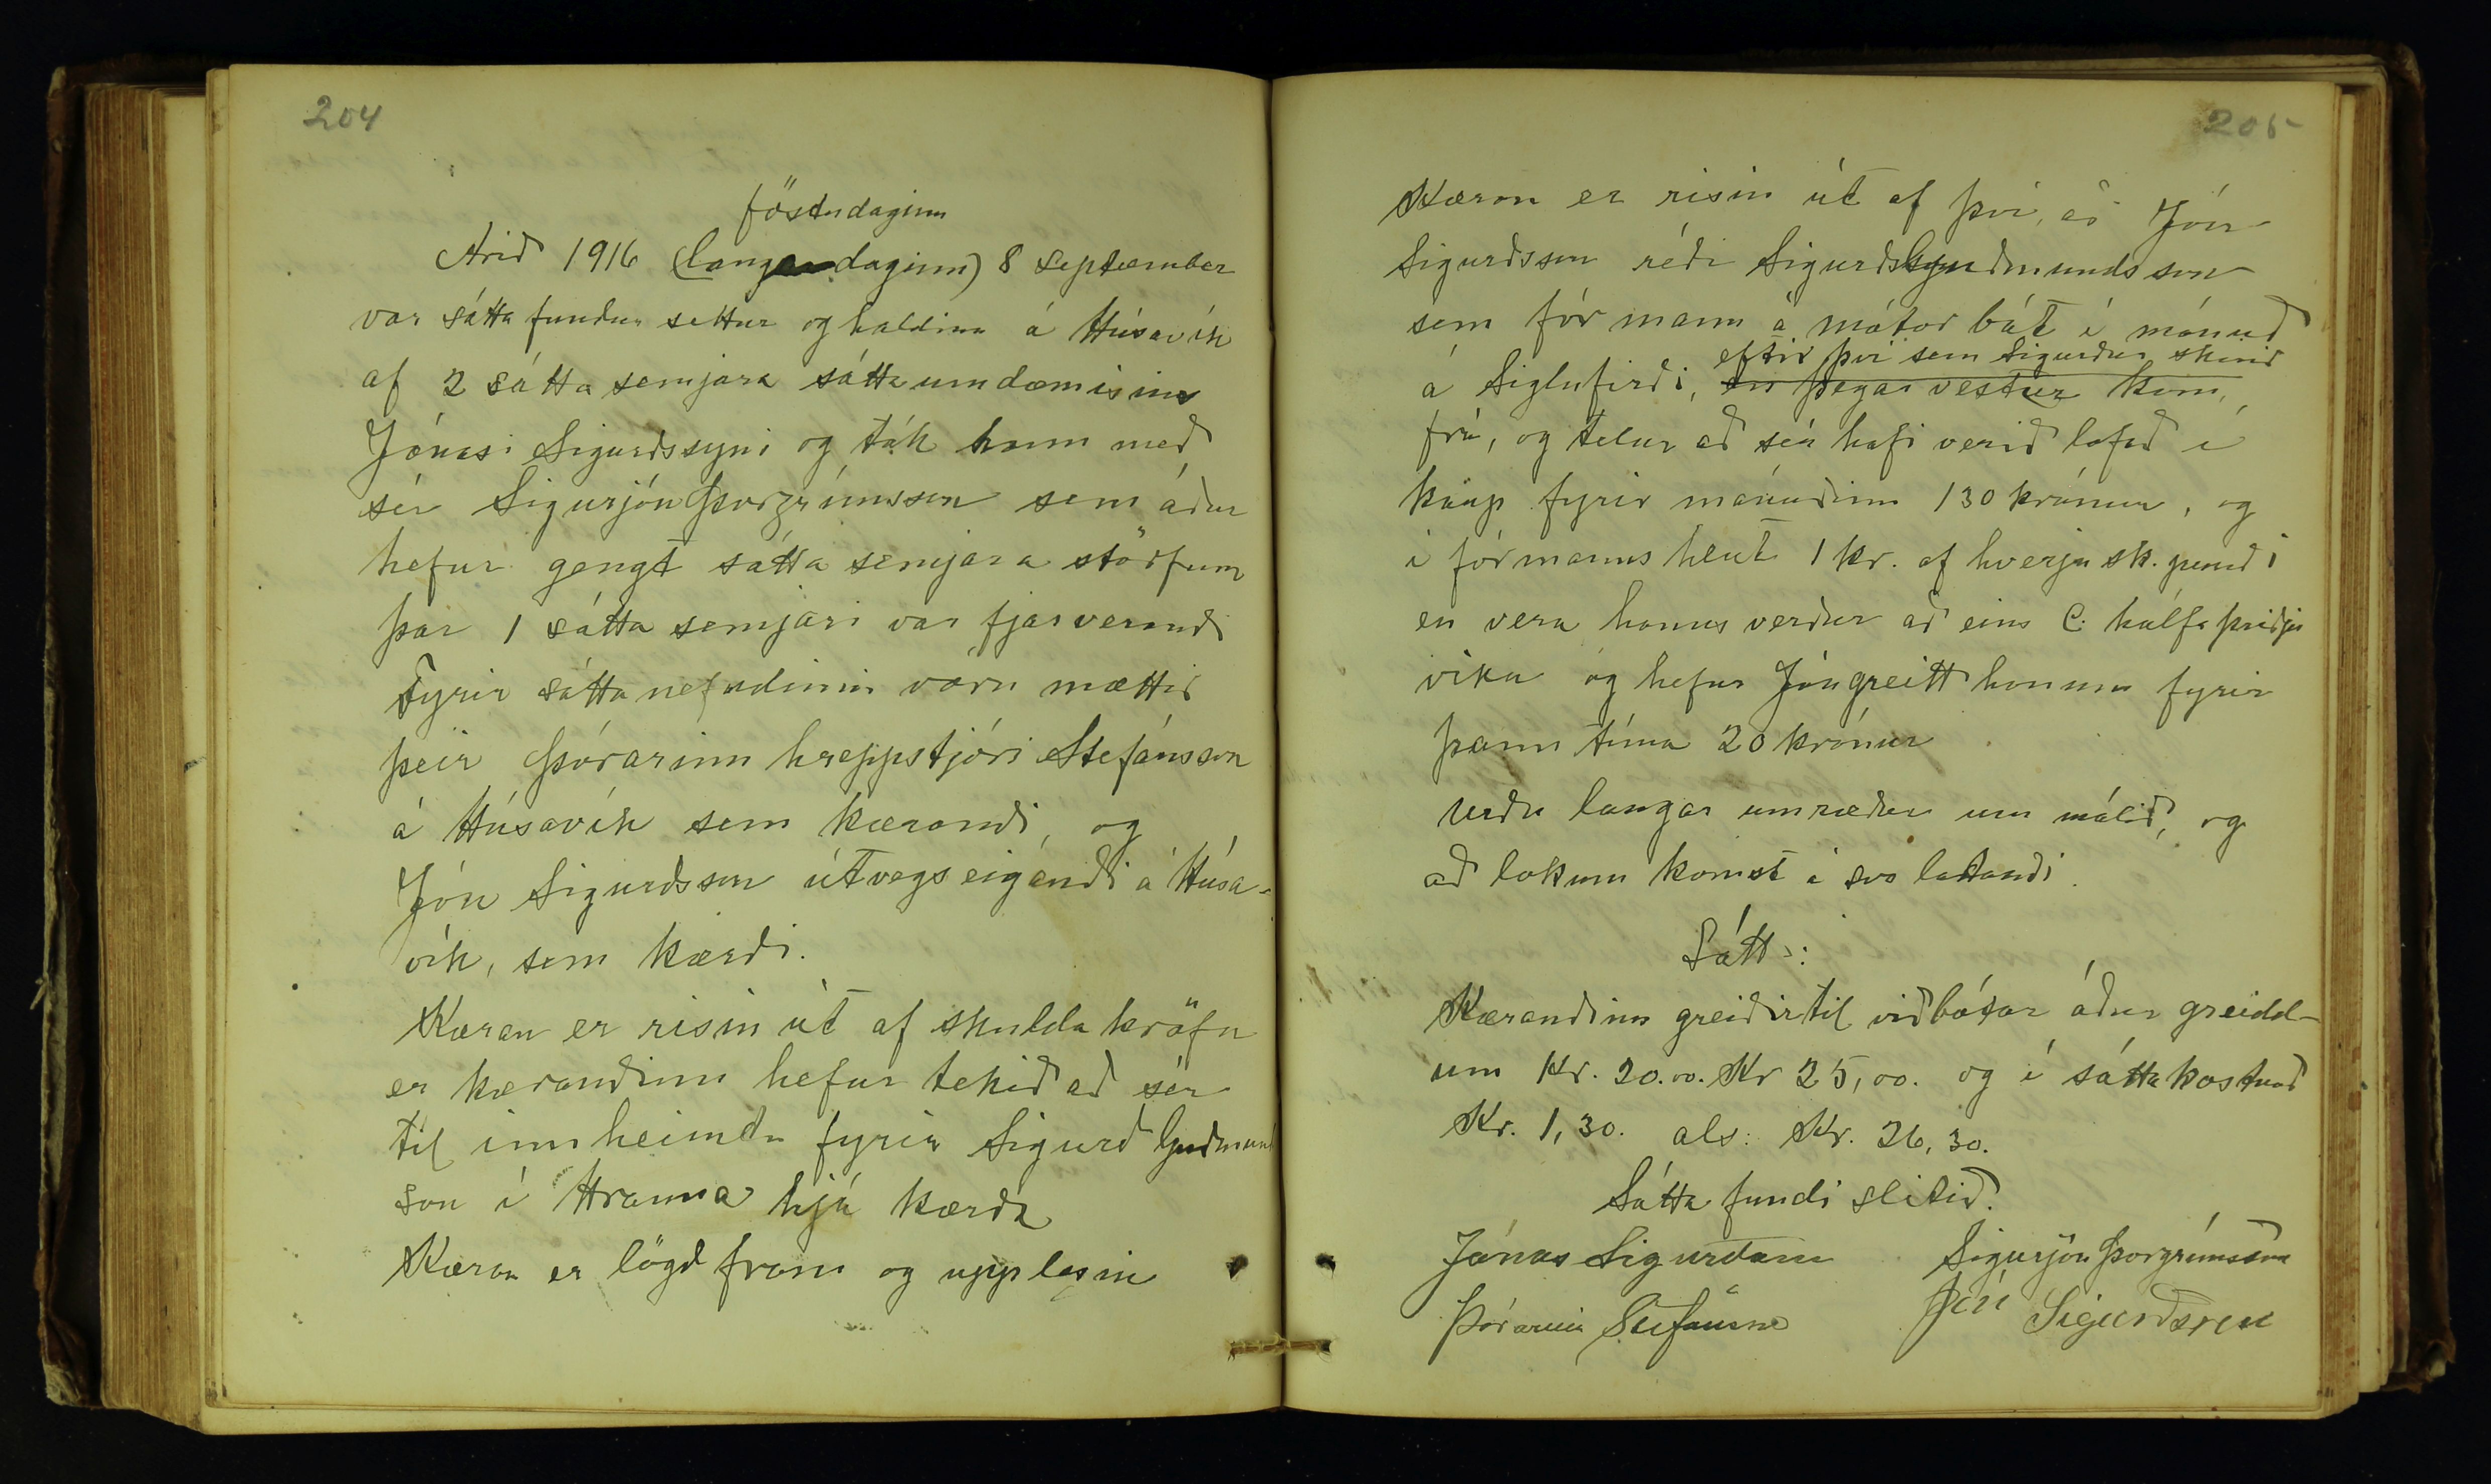 204
föstudaginn
Arið 1916 (laugardaginn) 8 september
var sátta fundur settur og haldinn á Húsavík
af 2 sátta semjara sáttaumdæmisins
Jónasi Sigurðssyni og tók hann með
sér Sigurjón Þorgrímsson sem áður
hefur gengt sátta semjara störfum
þar 1 sátta semjari var fjarverandi
Fyrir sátta nefndinni vóru mættir
þeir Þórarinn hreppstjóri Stefánsson
á Húsavík sem kærandi, og
Jón Sigurðsson útvegseigandi á Húsa-
vík, sem kærði.
Kæran er risin út af skulda kröfu
er kærandinn hefur tekið að sér
til innheimtu fyrir Sigurð Guðmund
son í Hramna hjá kærða
Kæran er lögð fram og upplesin
205
Kæran er risin út af því, að Jón
Sigurðsson réði Sigurð Guðmundsson
sem formann á mótor bát í mánuð
eftir því sem Sigurður skírið
á Siglufirði, en þegar vestur kom,
frá, og telur að sér hafi verið lofað í
kaup fyrir mánuðinn 130 krónur, og
í formanns hlut 1 kr. af hverju sk. pundi
en vera hanns verður að eins C. hálfa þriðju
viku og hefur Jón greitt honum fyrir
þann tíma 20 krónur
Urðu langar umræður um málið, og
að lokum komst á svo látandi
Sátt:
Kærandinn greiðir til viðbótar áður greidd-
um Kr. 20.00. Kr 25,00. og í sáttakostnað
Kr. 1,30. als: Kr. 26,30.
Sátta fundi slitið.
Jónas Sigurðsson Sigurjón Þorgrímsson
Þórarinn Stefánsson Jón Sigurðsson